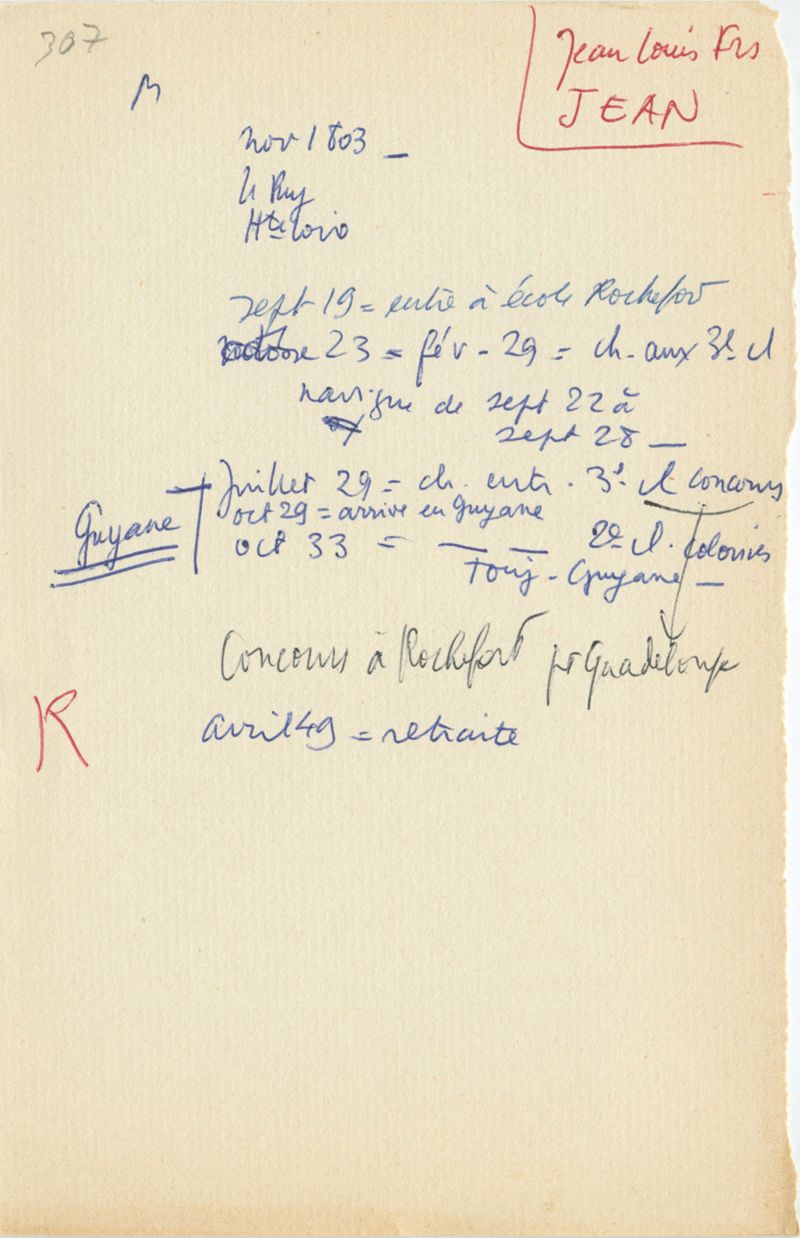 307
Jean Louis Frs
JEAN
M
nov 1803 _
le Puy
Hte Loire
sept 19 = entre à école Rochefort
23 = fév - 29 = ch. aux 3e cl
navigue de sept 22 à
sept 28 _
Juillet 29 = ch. entr. 3e cl concours
Guyane
oct 29 = arrive en Guyane
oct 33 = — — 2e cl. colonies
touj - Guyane _
Concours à Rochefort pr Guadeloupe
R
avril 49 = retraite